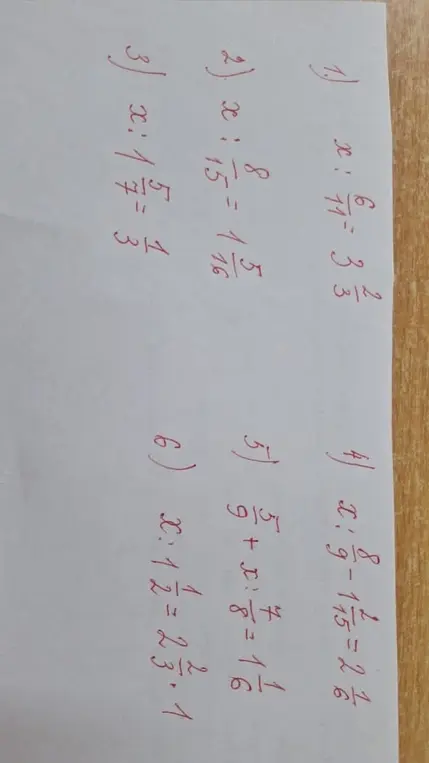 1.) x : 6/11 = 3 2/3
2) x : 8/15 = 1 5/16
3) x : 1 5/7 = 1/3
4) x : 8/9 - 1 2/15 = 2 1/6
5) 5/9 + x : 7/8 = 1 1/6
6) x : 1 1/2 = 2 2/3 · 1